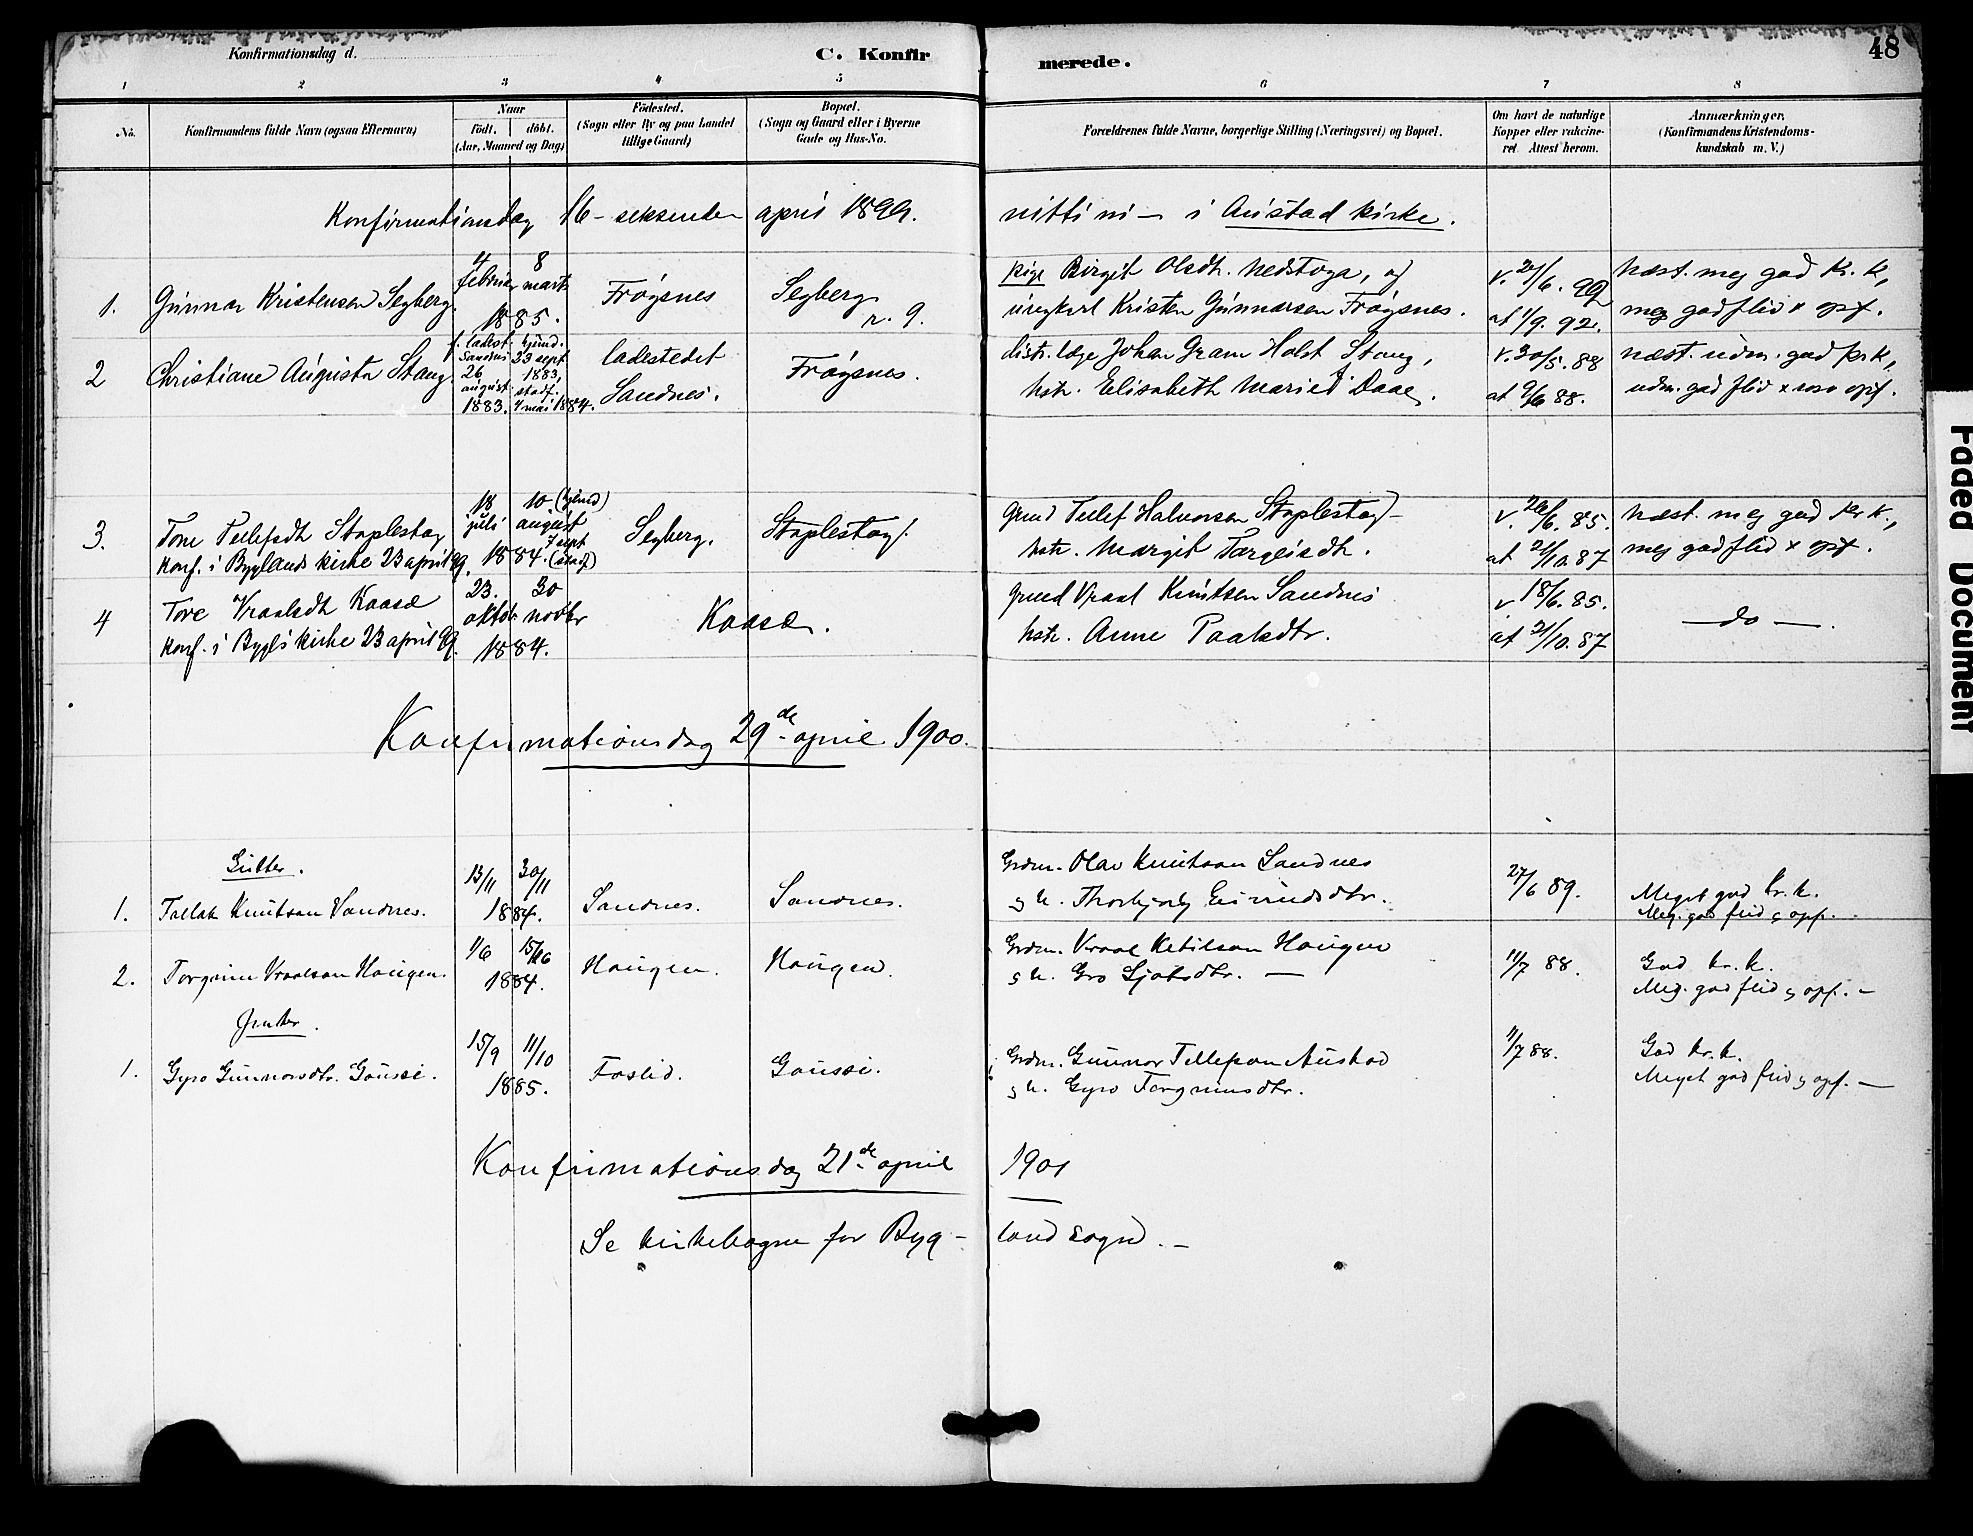 Konfirmationsdag d.
C. Konfir
merede.
48
1 2 3 4 5 6 7 8
No.
Konfirmandens fulde Navn (ogsaa Efternavn)
Naar
født. døbt.
(Aar, Maaned og Dag)
Fødested.
(Sogn eller By og paa Landet
tillige Gaard)
Bopæl.
(Sogn og Gaard eller i Byerne
Gade og Hus-No.
Forældrenes fulde Navne, borgerlige Stilling (Næringsvei) og Bopæl.
Om havt de naturlige
Kopper eller vakcine-
ret. Attest herom.
Anmærkninger.
(Konfirmandens Kristendoms-
kundskab m. V.)
Konfirmationsdag 16- seksenden april 1899. nitti ni - i Aústad kirke.
1. Gúnnar Kristensen Segberg.
4 februar 8 marts
1885.
Frøysnes
Segberg
r. 9.
pige Birgit Olsdtr. Nedstoga, og
úngkarl Kristen Gúnnarsen Frøysnes.
at 1/9. 92.
næst. meg god kr. k,
meg god flid x opf.
2 Christiane Aúgústa Stang
f. ladest. hjemd.
Sandnes 23 sept
26 1883,
august stadf.
1883. 4 mai 1884.
ladestedet
Sandnes.
Frøysnes.
distr. læge Johan Gram Holst Stang,
hstr. Elisabeth Marie Daae.
v. 30/5. 88
at 9/6 88.
næst. udm. god kr k,
udm. god flid x opf.
3. Tone Tellefsdtr Staplestog
konf. i Byglands kirke 23 april 99.
18 10. (hjemd)
juli august
7 sept
1884. (stadf)
Segberg.
Staplestog.
Grmd Tellef Halvorsen Staplestog -
hstr. Margit Targeisdtr.
at 21/10. 87
næst. meg god kr k.,
meg god flid x opf.
4 Tore Vraalsdtr Kaasæ
konf. i Bygl's kirke 23 april 99.
23. 30
oktobr novbr
1884.
Kaasæ.
grmd Vraal Knútsen Sandnes
hstr. Anne Paalsdtr.
v 18/6. 85.
at 21/10. 87
- do -.
Konfirmationsdag 29de april 1900.
Gutter.
1. Tallak Knutson Sandnes.
13/11 30/11
1884.
Sandnes.
Sandnes.
Grdm. Olav Knutson Sandnes
og h. Thorbjørg Eivindsdtr.
27/6 89.
Meget god kr. k.
Meg. god flid og opf.
2. Torgrim Vraalson Haugen.
1/6 15/6
1884.
Haugen.
Haugen.
Grdm. Vraal Ketilson Haugen
og h. Gro Ljotsdtr. -
11/7 88.
God kr. k.
Meg. god flid og opf. -
Jenter.
1. Gyro Gunnarsdtr. Gousæi.
15/9 11/10
1885.
Foslid.
Gousæi.
Grdm. Gunnar Tellefson Austad
og h. Gyro Torgrimsdtr.
11/7 88.
God kr. k.
Meget god flid og opf. -
Konfirmationsdag 21de april 1901
Se kirkebogen for Byg- land sogn. -
Faded Document